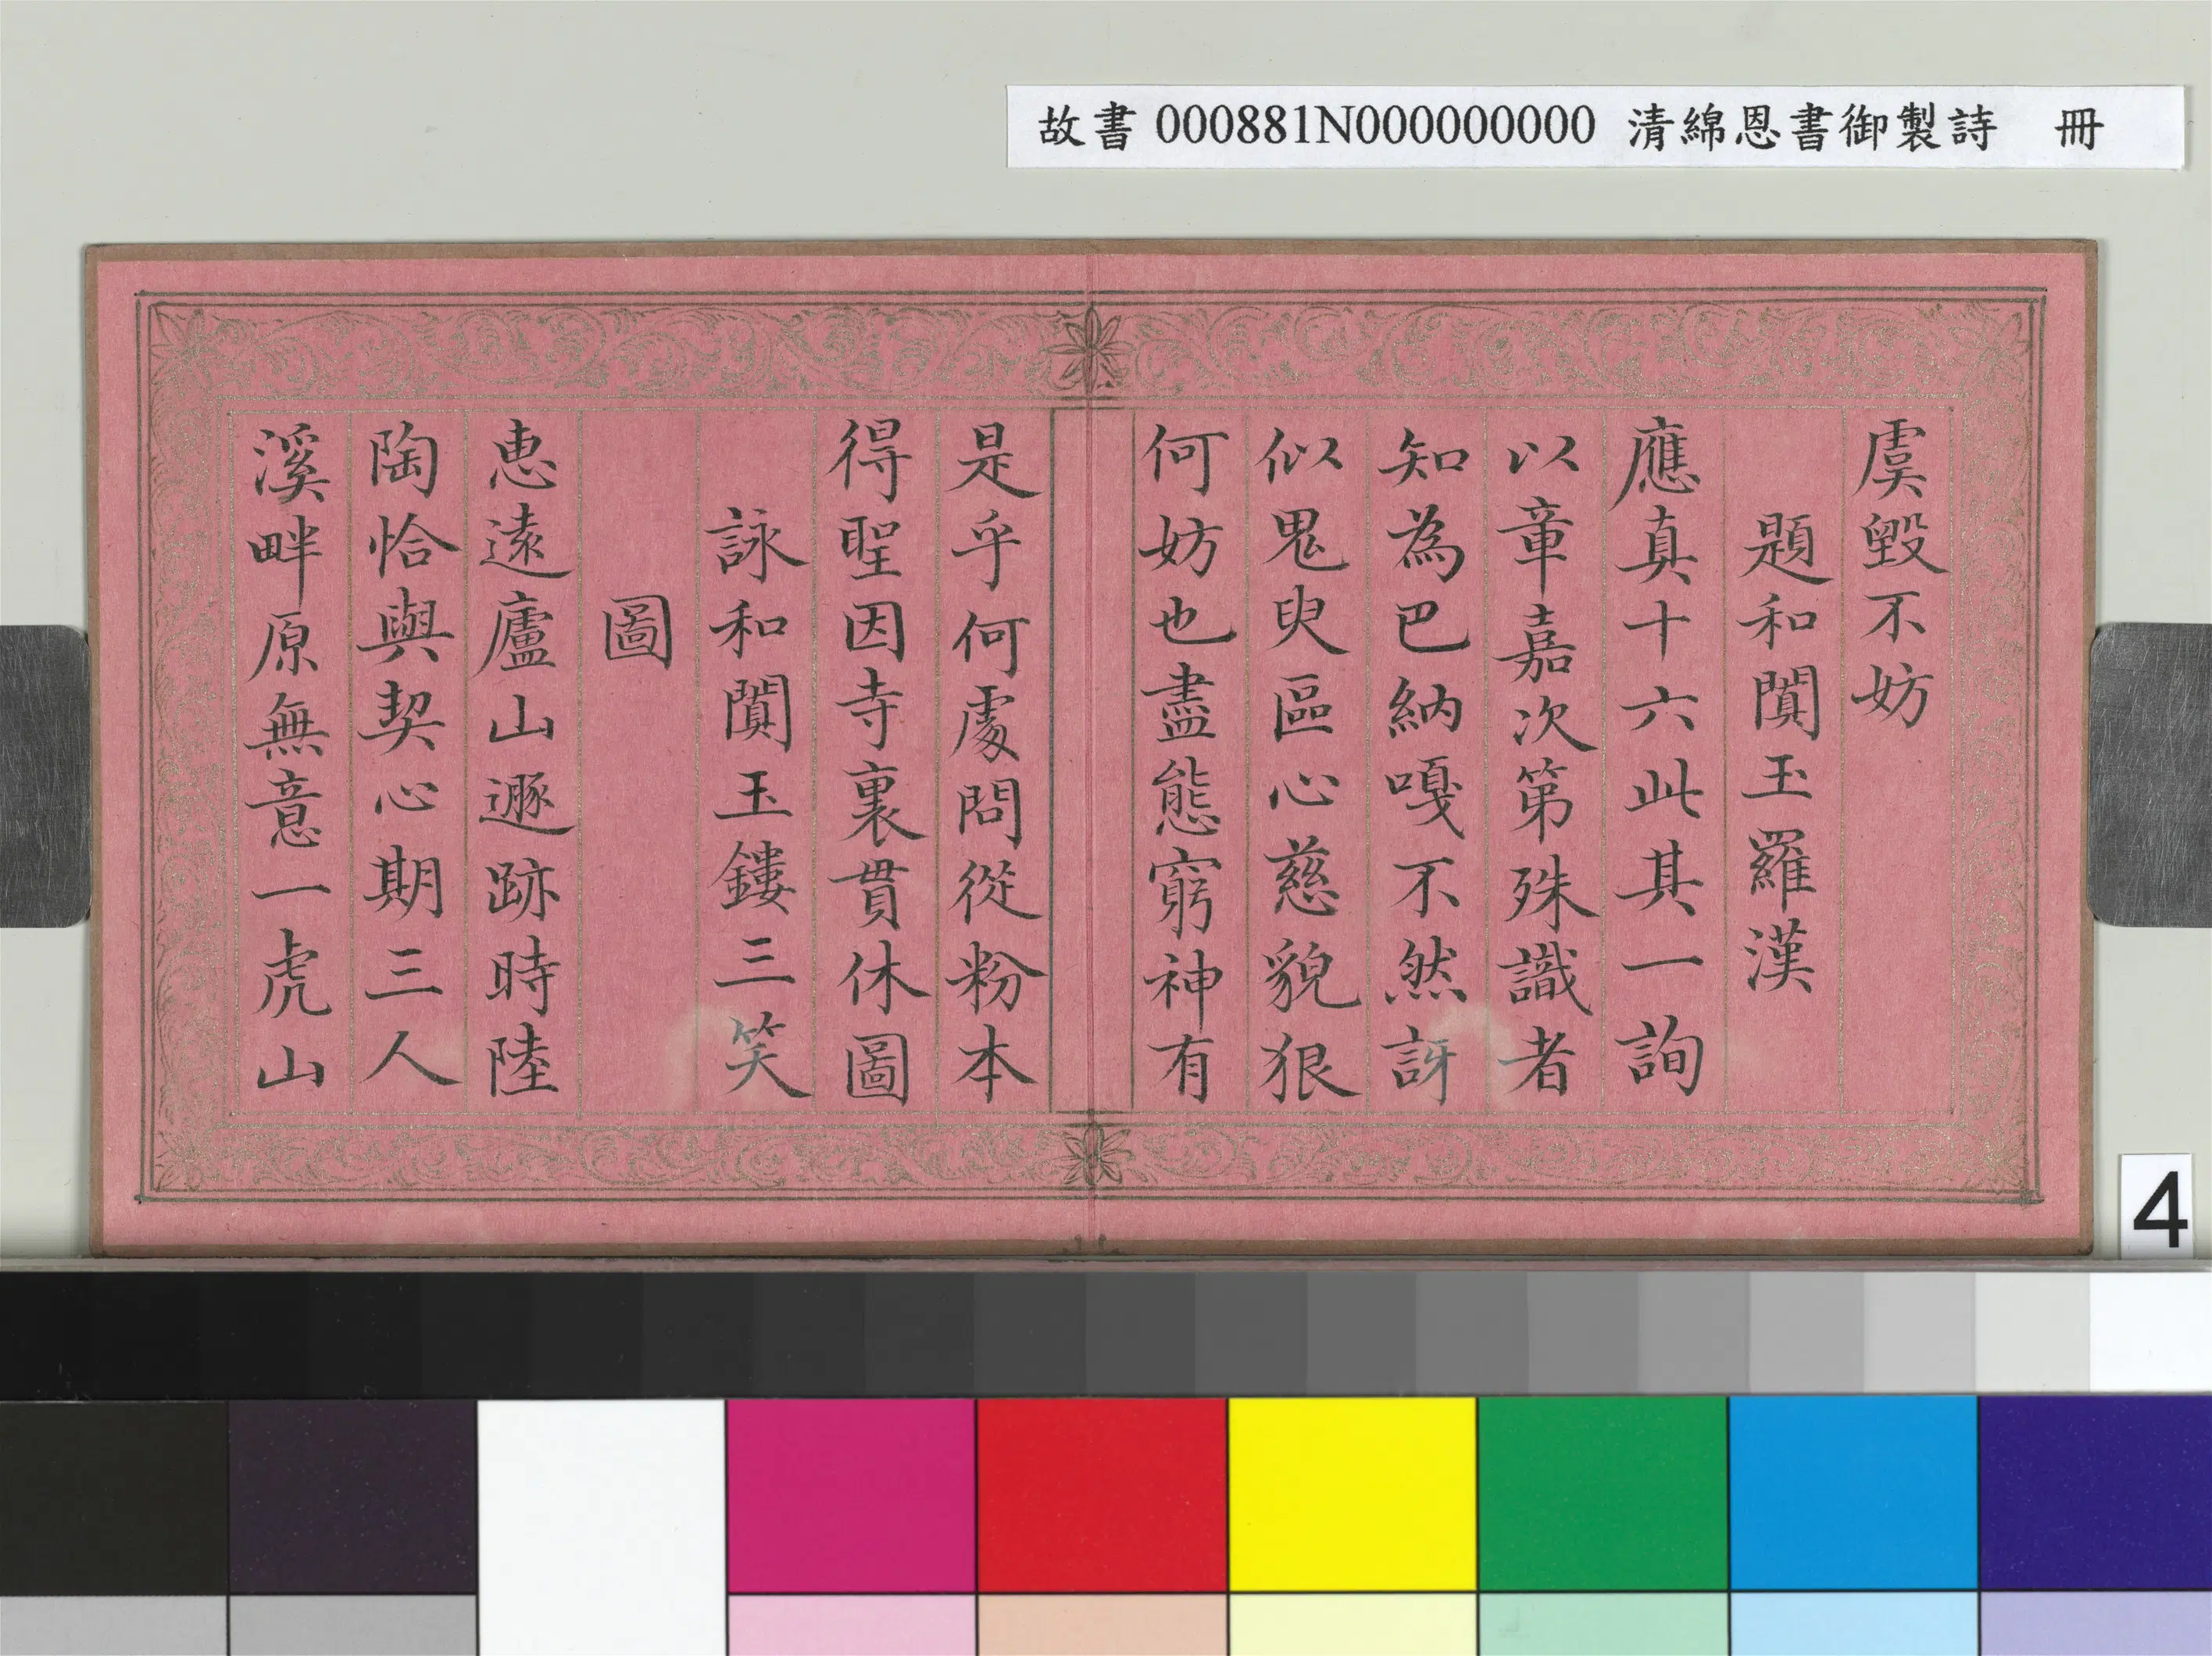 故書 000881N000000000 清綿恩書御製詩 冊
虞毀不妨
題和闐玉羅漢
應真十六此其一詢
以章嘉次第殊識者
知為巴納嘎不然訝
似鬼臾區心慈貌狠
何妨也盡態窮神有
是乎何處問從粉本
得聖因寺裏貫休圖
詠和闐玉鏤三笑
圖
惠遠廬山遯跡時陸
陶恰與契心期三人
溪畔原無意一虎山
4